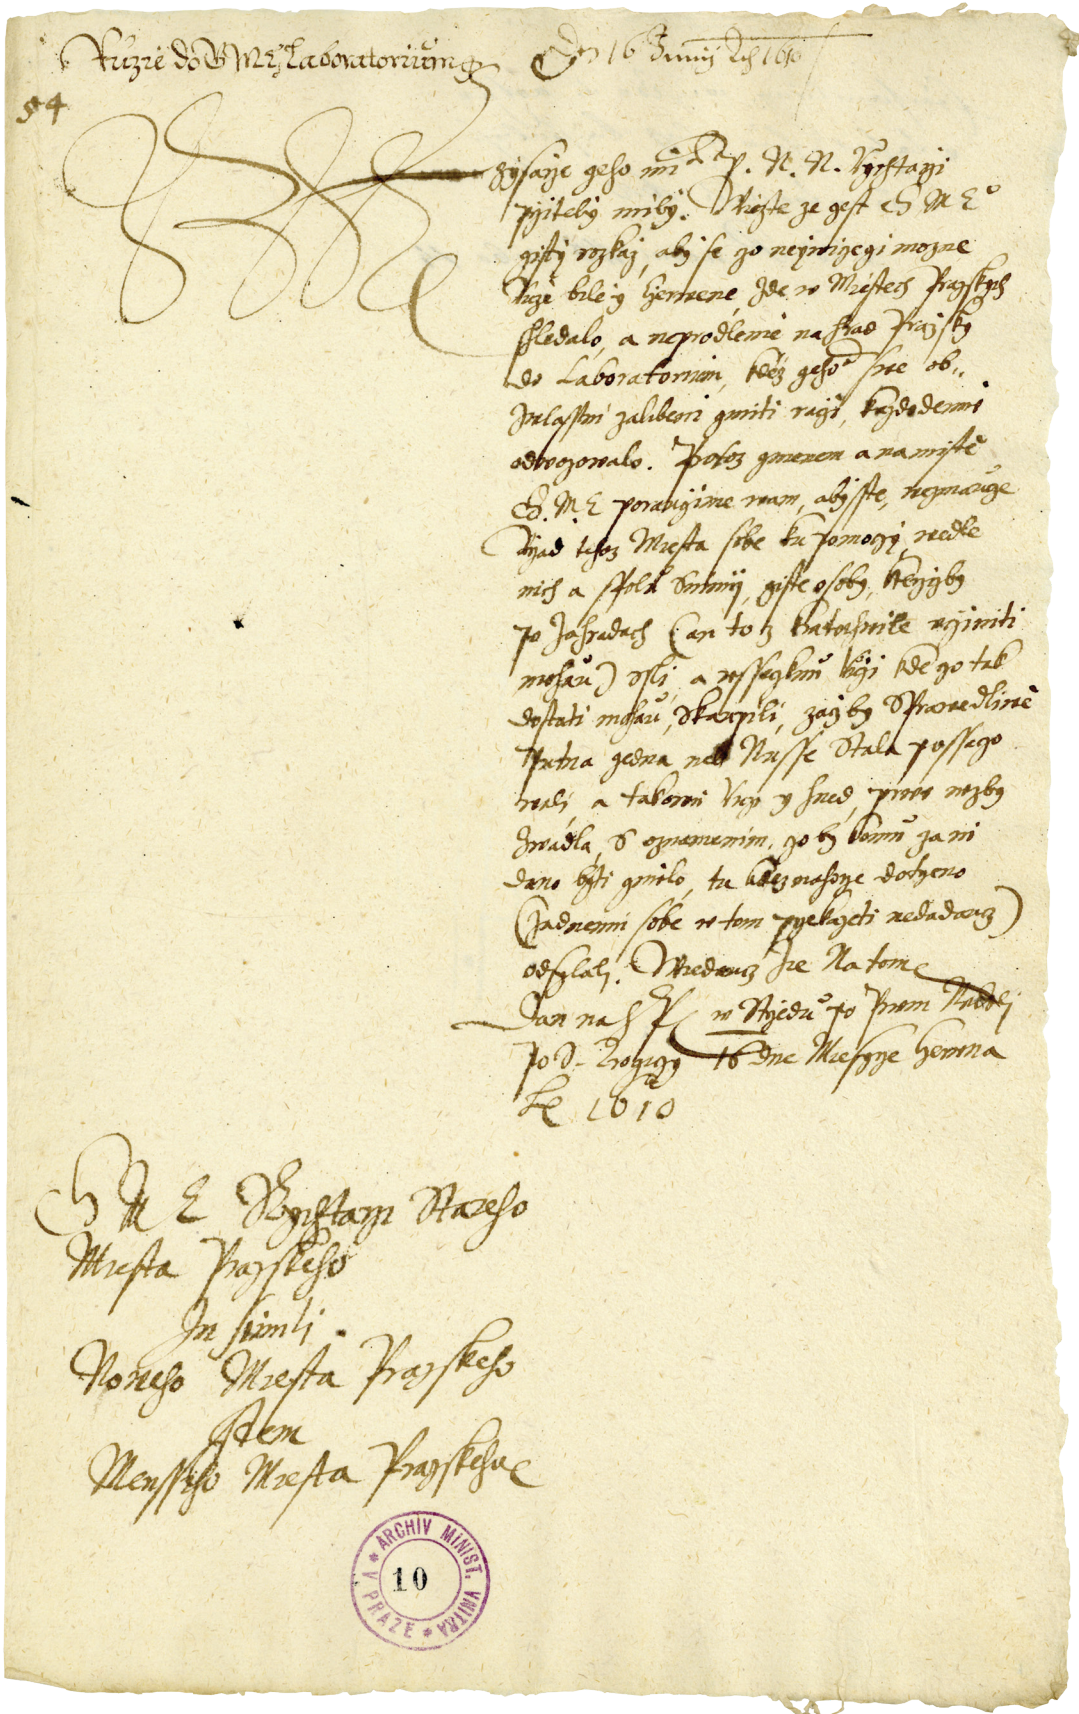 Ruzie do G M Cz Laboratorium
Dto 16 Junij Ao 1610
54
Czysarže geho mti p. N. N. Rychtarži
pržiteli milý. Wiezte ze gest G M Cu
gistý rozkaz, aby se czo neywiczegi mozne
Ruže bile y czerwene, zde w Miestech Prazskych
shledalo, a neprodlenie na hrad Prazsky
do Laboratorium, kdež geho mt swe ob-
zwlasstni zalibeni gmiti ragi, každodennie
odwozowalo. Protoz gmenem a na mistie
G. M. C porauczime wam, abysste, wezmauce
Ržad tehoz Miesta sobe ku pomoczy, wedle
nich a spolu s nimi, giste osoby, kterzyžby
po Zahradach (an to z kratochwile ucziniti
mohau) ssli, a wsseczknu Ruži kde go tak
dostati mohau, skaupili, zacz by sprawedliwie
Putna gedna neb Nusse stala possaczo
wali, a takowu Ruži y hned, prwe nezby
zwadla, s oznamenim, czo by komu za ni
dano býti gmielo, tu kdež nahorže dotczeno
(žadnemu sobe w tom przekazeti nedadaucz)
odsylali. Wiedaucz že Na tom
Dan na H P w Strzedu po Prwni Nedeli
Po S. Trogiczy 16 dne Miesycze Czerwna
Le 1610
G M C Rychtarzi Stareho
Miesta Prazskeho
In simili
Noweho Miesta Prazskeho
Item
Menssiho Miesta Prazskeho
ARCHIV MINIST. VNITRA V PRAZE
10